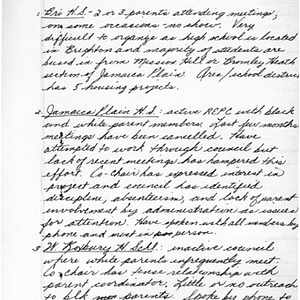 1. Bri H.S. - 2 or 3 parents attending meetings;
on some occasions - no show. Very
difficult to organize as high school is located
in Brighton and majority of students are
bused in from Mission Hill or Bromley Heath
section of Jamaica Plain. Area/school district
has 5 housing projects.
2. Jamaica Plain H.S.: active REPC with black
and white parent members. Last few months
meetings have been cancelled. Have
attempted to work through council but
lack of recent meetings has hampered this
effort. Co-chair has expressed interest in
project and council has identified
discipline, absenteeism, and lack of parent
involvement by administration as issues
for attention. Have spoken with all members by
phone and most in person.
3. W. Roxbury H.S.: inactive council
where white parents infrequently meet.
Co-chair has tense relationship with
parent coordinator. Little or no outreach
to blk parents. Spoke by phone to